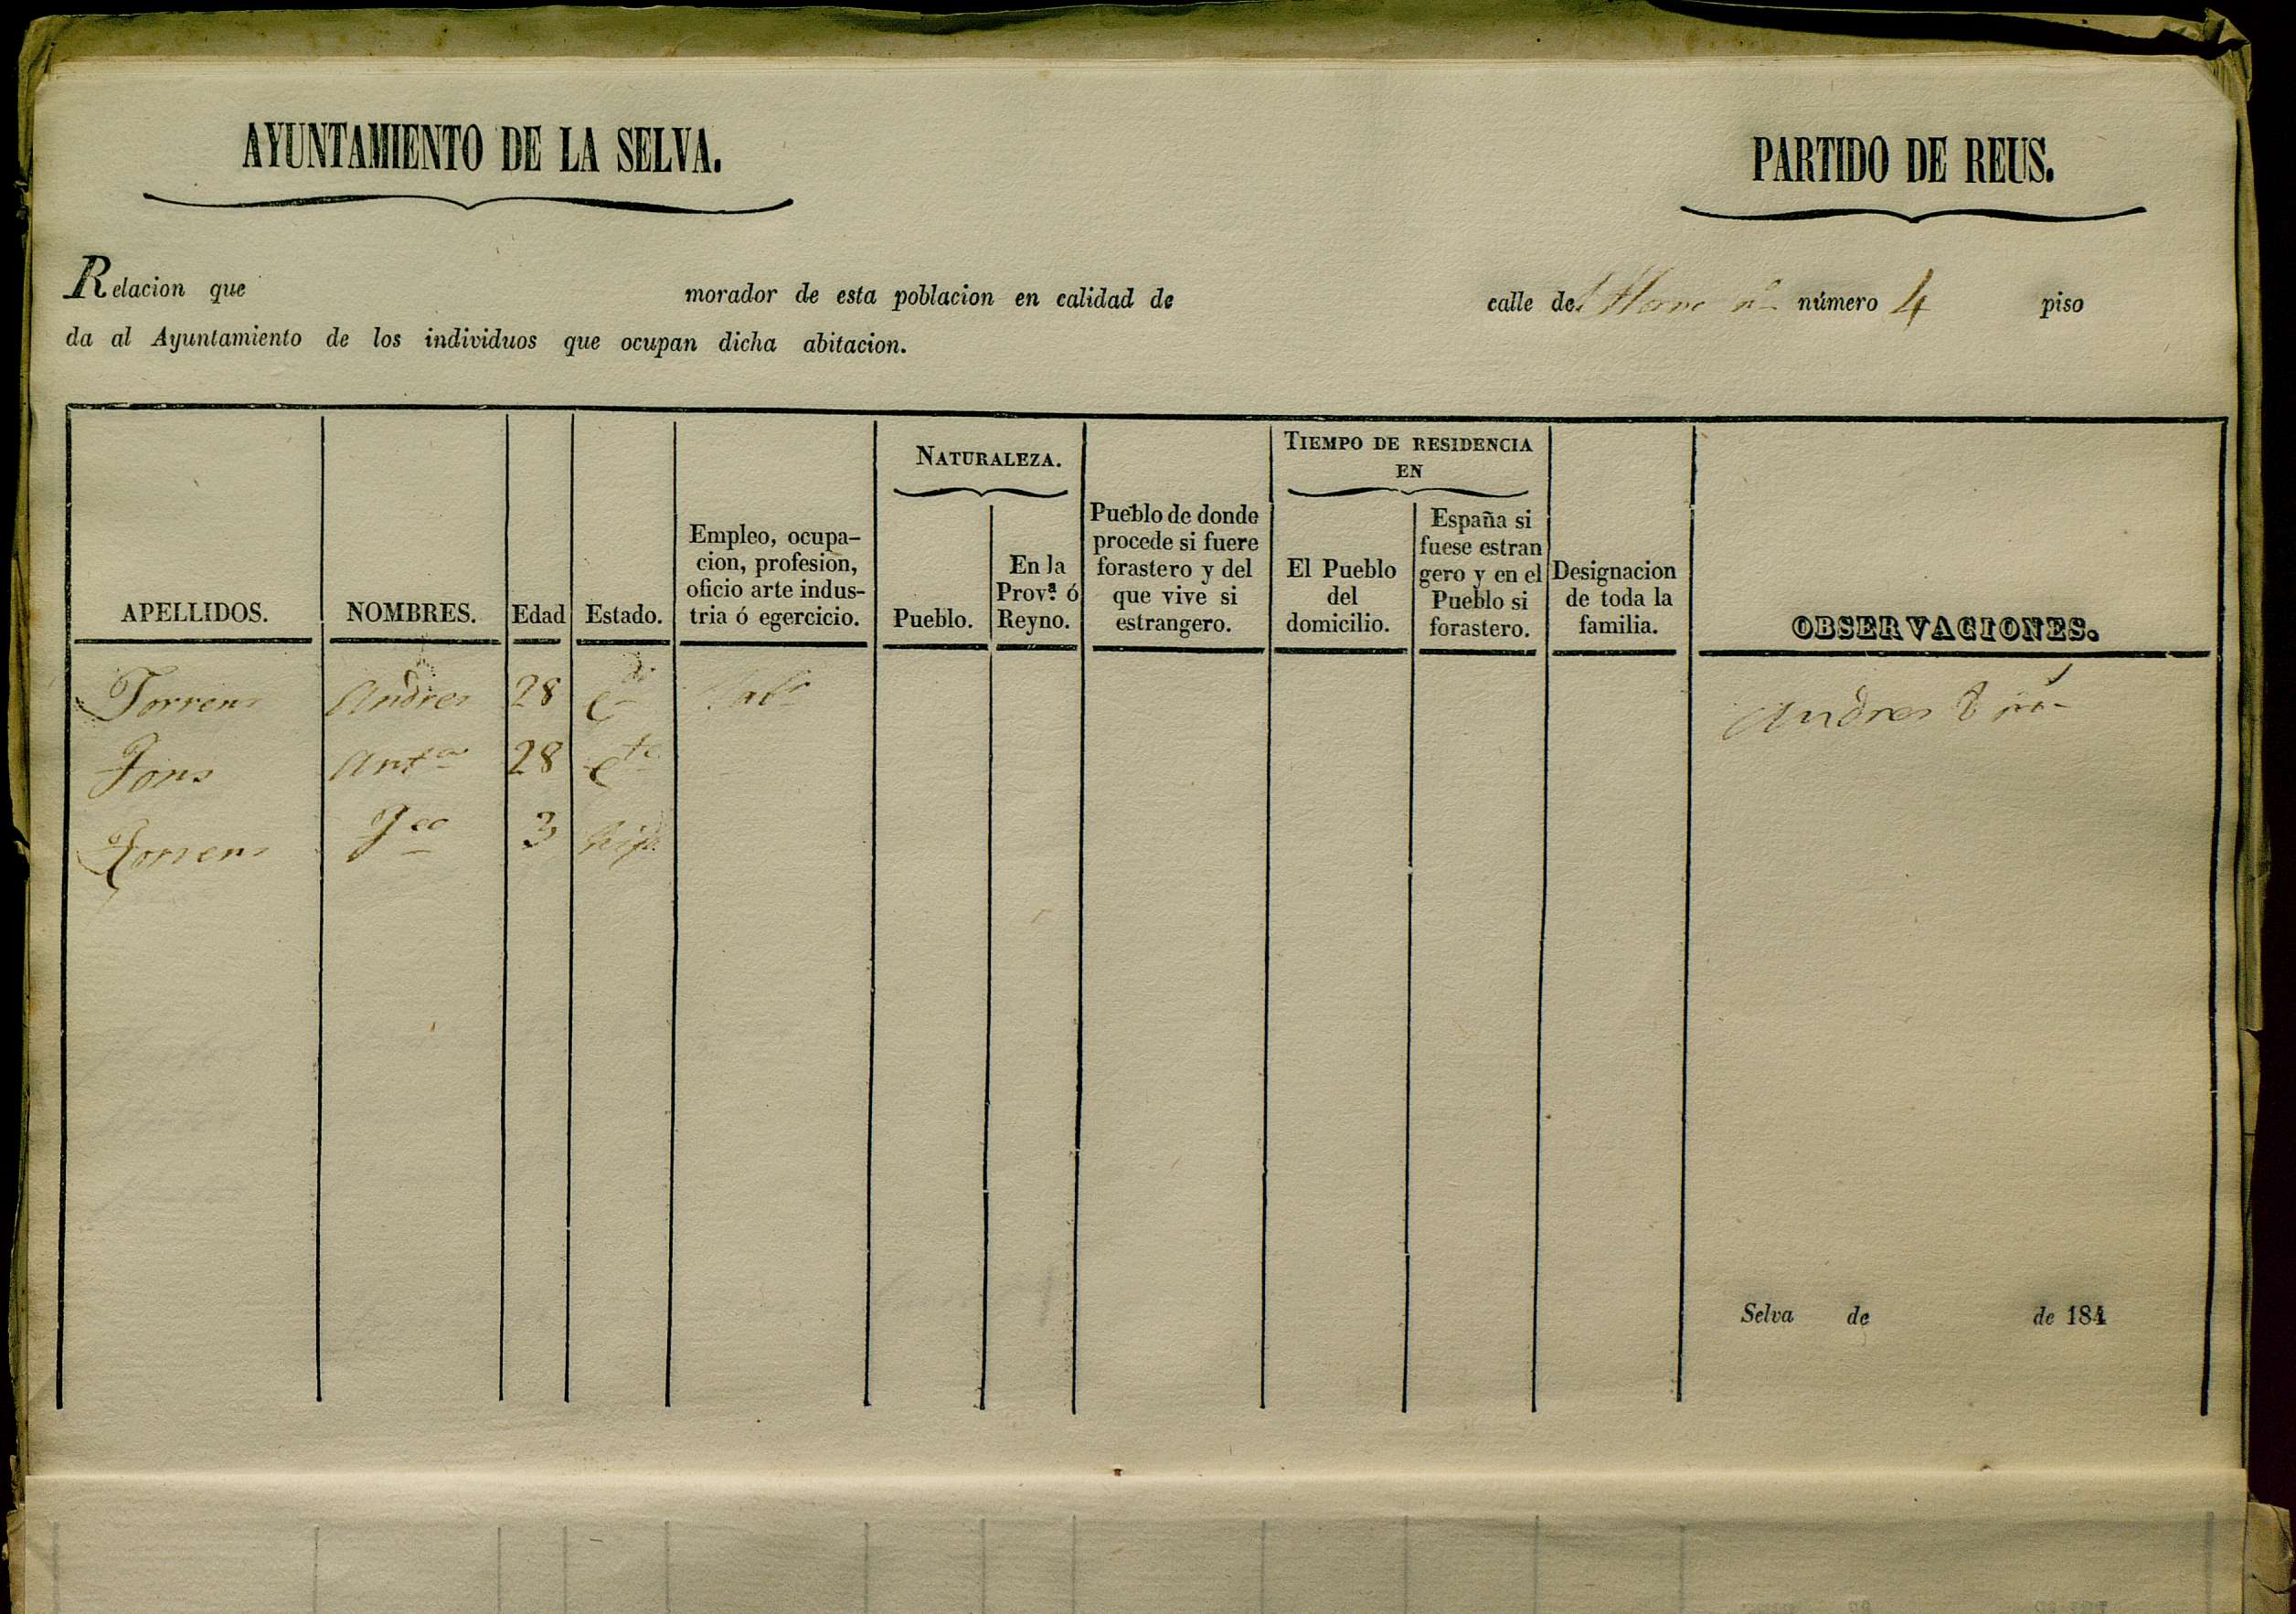 AYUNTAMIENTO DE LA SELVA.
PARTIDO DE REUS.
Relacion que morador de esta poblacion en calidad de calle del número 4 piso
da al Ayuntamiento de los individuos que ocupan dicha abitacion.
APELLIDOS.
NOMBRES.
Edad
Estado.
Empleo, ocupa-
cion, profesion,
oficio arte indus-
tria ó egercicio.
NATURALEZA.
Pueblo.
En la
Prov.ª ó
Reyno.
Pueblo de donde
procede si fuere
forastero y del
que vive si
estrangero.
TIEMPO DE RESIDENCIA
EN
El Pueblo
del
domicilio.
España si
fuese estran
gero y en el
Pueblo si
forastero.
Designacion
de toda la
familia.
OBSERVACIONES.
Torrens Andres 28 Cdo Labr Andres
Fons Anta 28 Cta
Torrens 3 hija
Selva de de 184